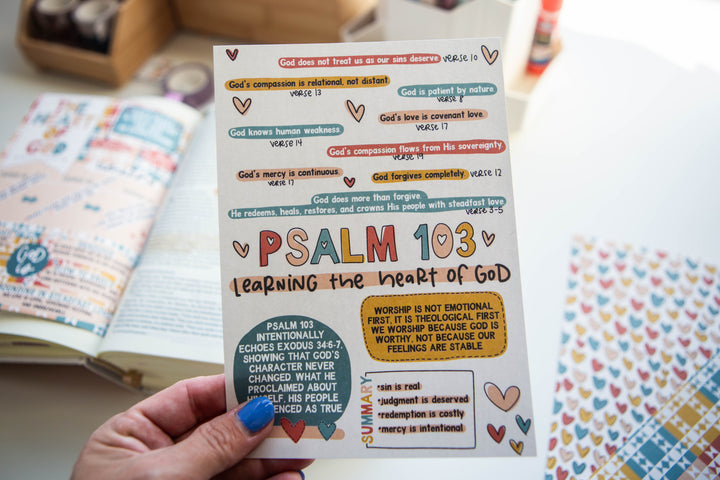 God does not treat us as our sins deserve verse 10
God's compassion is relational, not distant.
verse 13
God is patient by nature
verse 8
God's love is covenant love.
verse 17
God knows human weakness
verse 14
God's compassion flows from His sovereignty
verse 19
God's mercy is continuous
verse 17
God forgives completely verse 12
God does more than forgive.
He redeems, heals, restores, and crowns His people with steadfast love
verse 3-5
PSALM 103
Learning the heart of God
WORSHIP IS NOT EMOTIONAL
FIRST, IT IS THEOLOGICAL FIRST
WE WORSHIP BECAUSE GOD IS
WORTHY, NOT BECAUSE OUR
FEELINGS ARE STABLE
PSALM 103
INTENTIONALLY
ECHOES EXODUS 34:6-7,
SHOWING THAT GOD'S
CHARACTER NEVER
CHANGED. WHAT HE
PROCLAIMED ABOUT
HIMSELF, HIS PEOPLE
ENCED AS TRUE
SUMMARY
•sin is real
•judgment is deserved
•redemption is costly
•mercy is intentional